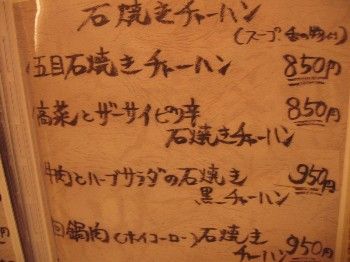 石焼きチャーハン
(スープ 香の物付)
五目石焼きチャーハン 850円
高菜とザーサイピリ辛 850円
石焼きチャーハン
牛肉とハーブサラダの石焼き 950円
黒チャーハン
回鍋肉(ホイコーロー)石焼き
チャーハン 950円